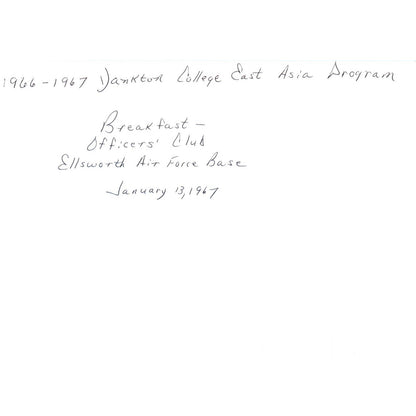 1966-1967 Yankton College East Asia Program
Breakfast -
Officers' Club
Ellsworth Air Force Base
January 13, 1967